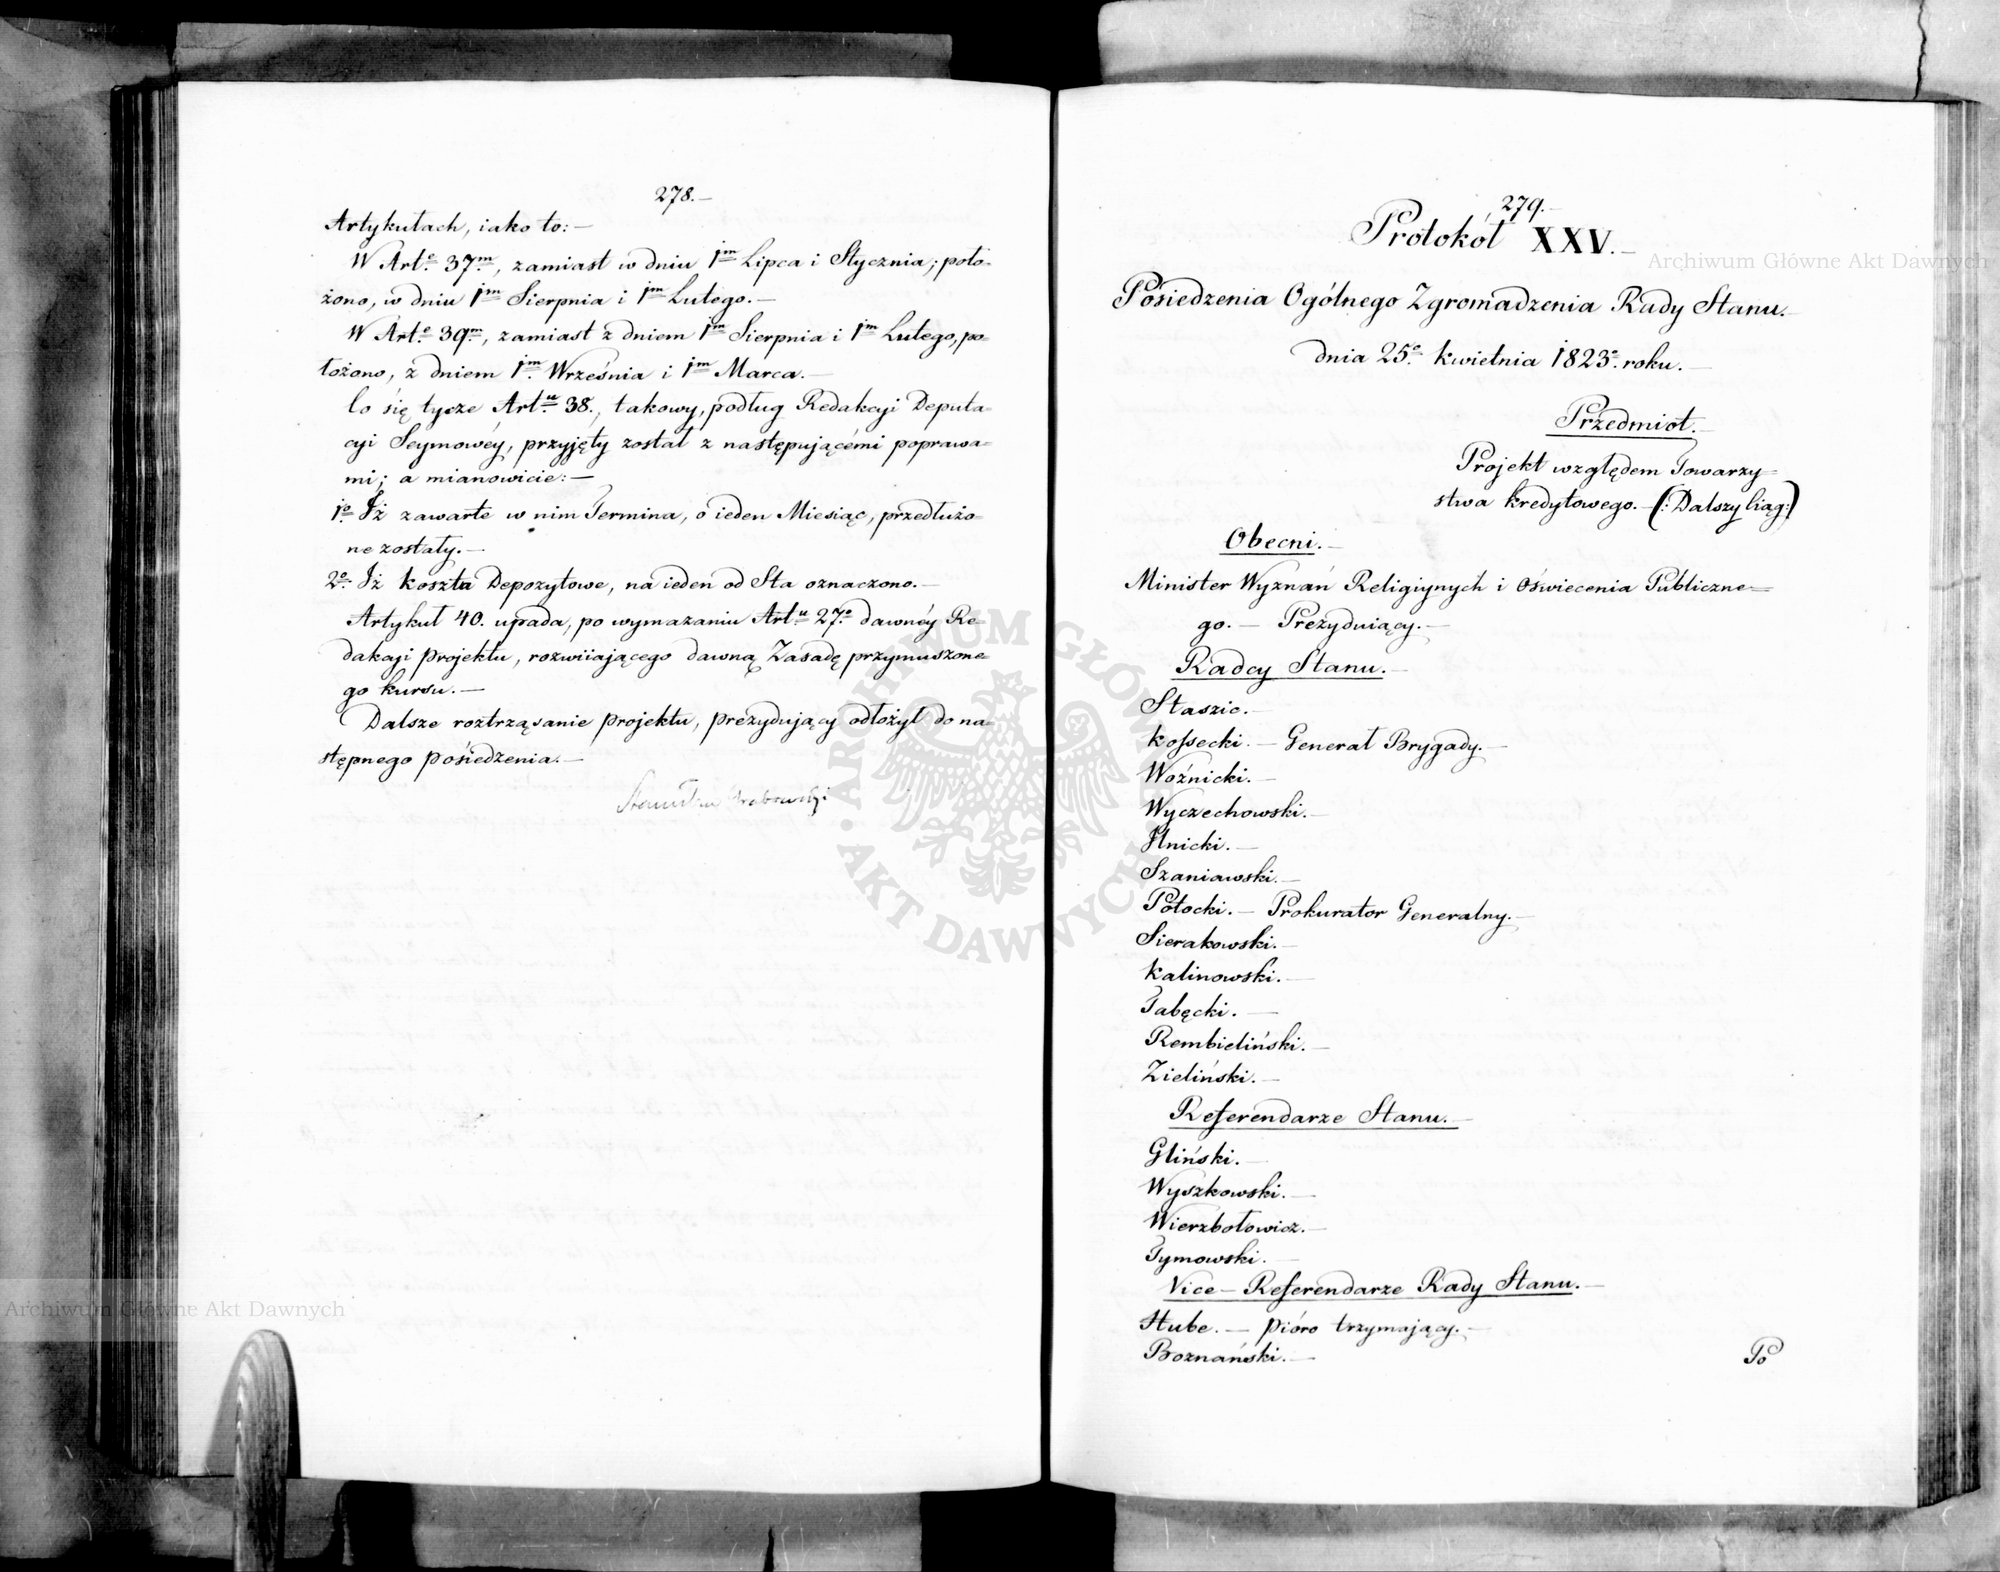 278.—
Artykułach, iako to:—
W Art.e 37m., zamiast w dniu 1m Lipca i Stycznia; poło=
żono, w dniu 1m Sierpnia i 1m Lutego.—
W Art.e 39m., zamiast z dniem 1m Sierpnia i 1m Lutego, po=
łożono, z dniem 1m. Września i 1m Marca.—
Co się tycze Art.u 38., takowy, podług Redakcyi Deputa=
cyi Seymowéy, przyjęty został z następującémi poprawa=
mi; a mianowicie:—
1o. Iż zawarte w nim Termina, o ieden Miesiąc, przedłużo=
ne zostały.—
2o. Iż koszta Depozytowe, na ieden od Sta oznaczono.—
Artykuł 40. upada, po wymazaniu Art.u 27o. dawnéy Re=
dakcyi projektu, rozwiiającego dawną Zasadę przymuszone=
go kursu.—
Dalsze roztrząsanie projektu, prezydujący odłożył do na=
stępnego posiedzenia.—
Stanisław Grabowski
279.—
Protokół XXV.—
Posiedzenia Ogólnego Zgromadzenia Rady Stanu.—
dnia 25o. kwietnia 1823o. roku.—
Przedmiot.—
Projekt względem Towarzy=
stwa kredytowego.—(:Dalszy Ciąg:)
Obecni.—
Minister Wyznań Religiynych i Oświecenia Publiczne=
go.— Prezyduiący.—
Radcy Stanu.—
Staszic.—
Kossecki.— Generał Brygady.—
Woźnicki.—
Wyczechowski.—
Ilnicki.—
Szaniawski.—
Potocki.— Prokurator Generalny.—
Sierakowski.—
Kalinowski.—
Tabęcki.—
Rembieliński.—
Zieliński.—
Referendarze Stanu.—
Gliński.—
Wyszkowski.—
Wierzbołowicz.—
Tymowski.—
Vice—Referendarze Rady Stanu.—
Hube.— pióro trzymający.—
Boznański.—
Po
Archiwum Główne Akt Dawnych
Archiwum Główne Akt Dawnych
ARCHIWUM GŁÓWNE · AKT DAWNYCH ·